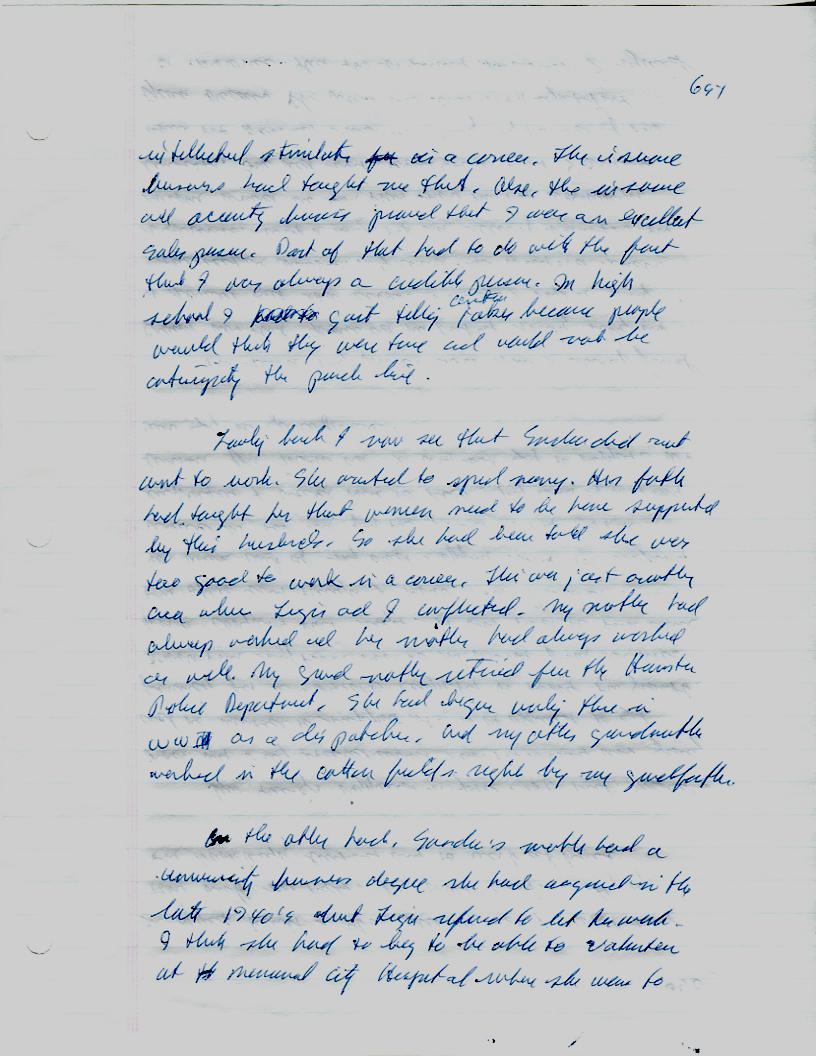 intellectual stimulate for in a career. The insurance
business had taught me that. Also, the insurance
and security business proved that I was an excellent
sales person. Part of that had to do with the fact
that I was always a credible person. In high
school I quit telling certain jokes because people
would think they were true and would not be
anticipating the punch line.
Looking back I now see that Sandra did not
want to work. She wanted to spend money. Her father
had taught her that women need to be home supported
by their husbands. So she had been told she was
too good to work in a career. This was just another
area where and I conflicted. My mother had
always worked and her mother had always worked
as well. My grandmother retired from the Houston
Police Department. She had begun working there in
WWII as a dispatcher. And my other grandmother
worked in the cotton fields right by my grandfather.
On the other hand, Sandra's mother had a
university business degree she had acquired in the
late 1940's but refused to let her work.
I think she had to beg to be able to volunteer
at Memorial City Hospital where she went to